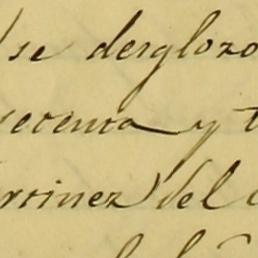 se desglozo
setenta y t
rtinez) del